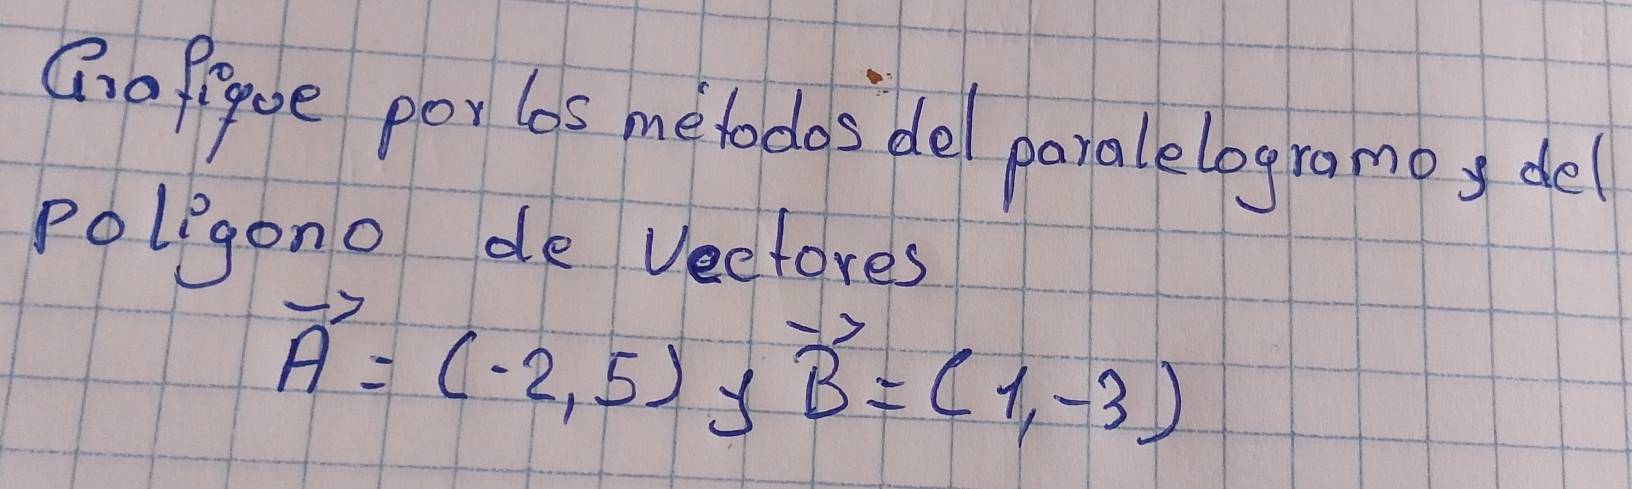 Grafique por los métodos del paralelogramo y del
polígono de vectores
A⃗ = (-2,5) y B⃗ = (1,-3)